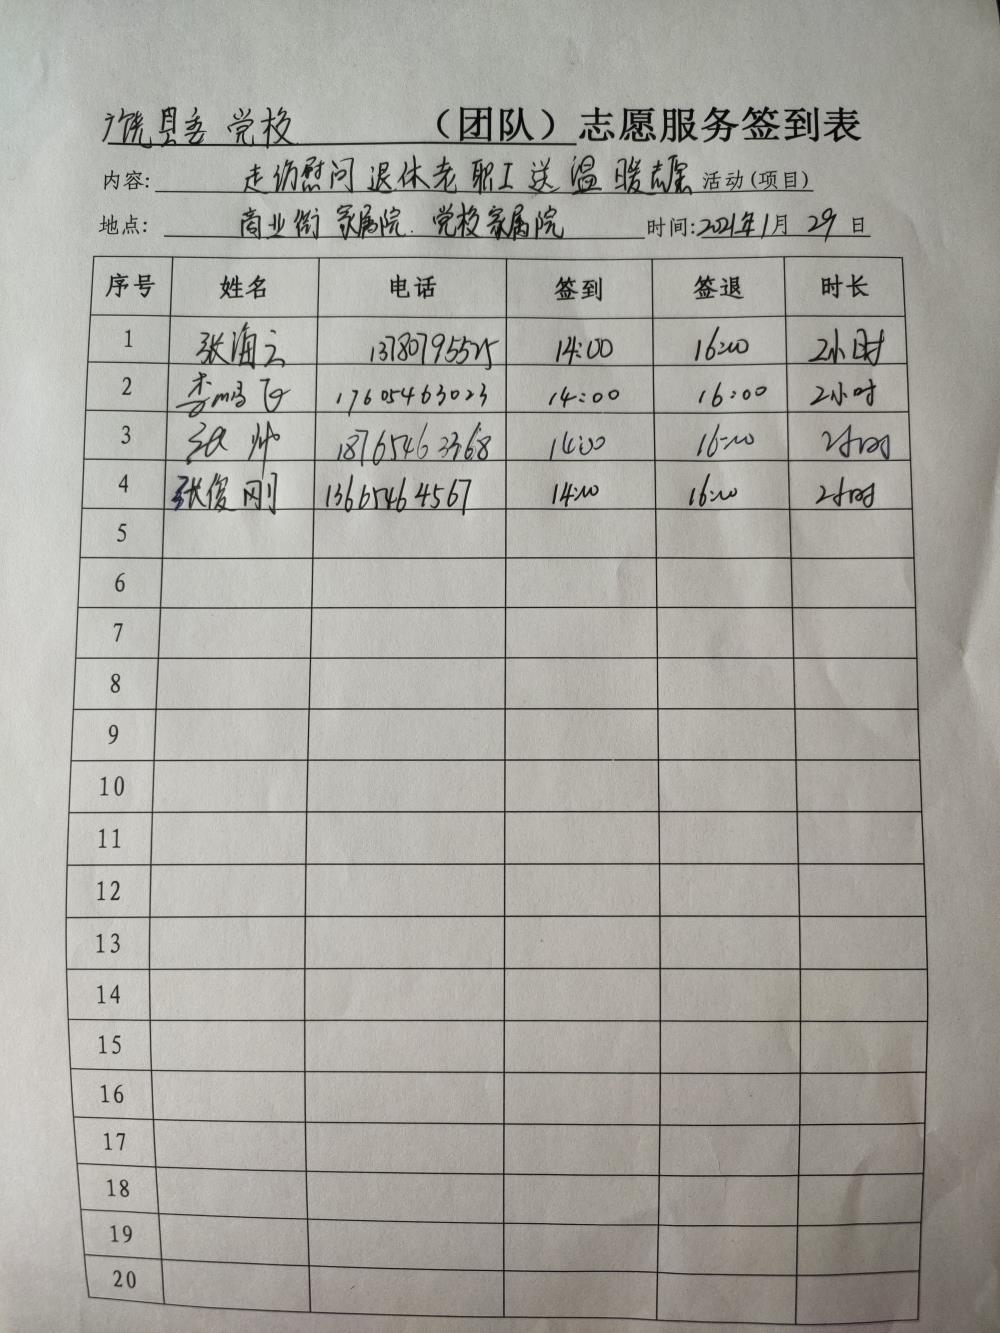 广饶县委党校 （团队）志愿服务签到表
内容: 走访慰问退休老职工送温暖志愿 活动(项目)
地点: 商业街家属院.党校家属院 时间:2021年1月29日
序号 姓名 电话 签到 签退 时长
1 张海云 13780795525 14:00 16:00 2小时
2 李鸣飞 17605463023 14:00 16:00 2小时
3 张帅 18765463368 14:00 16:00 2小时
4 张俊刚 13665464567 14:00 16:00 2小时
5
6
7
8
9
10
11
12
13
14
15
16
17
18
19
20